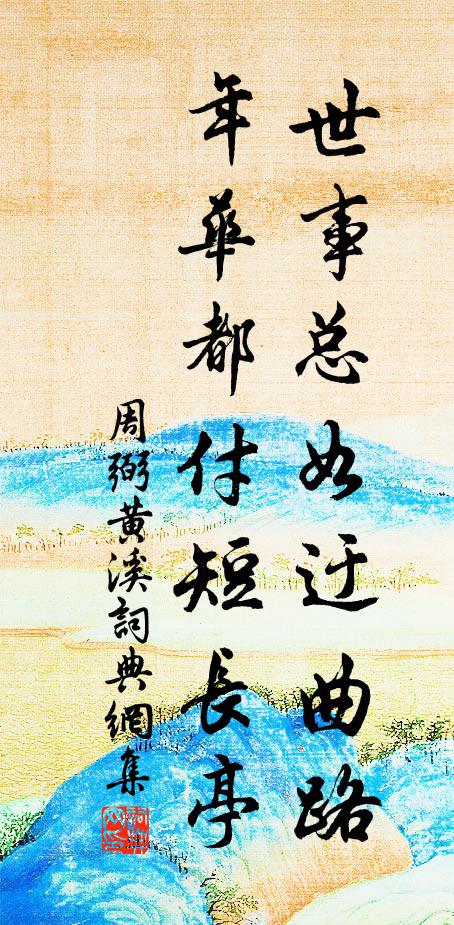 世事总如迂曲路
年華都付短長亭
周弼黄溪詞典網集